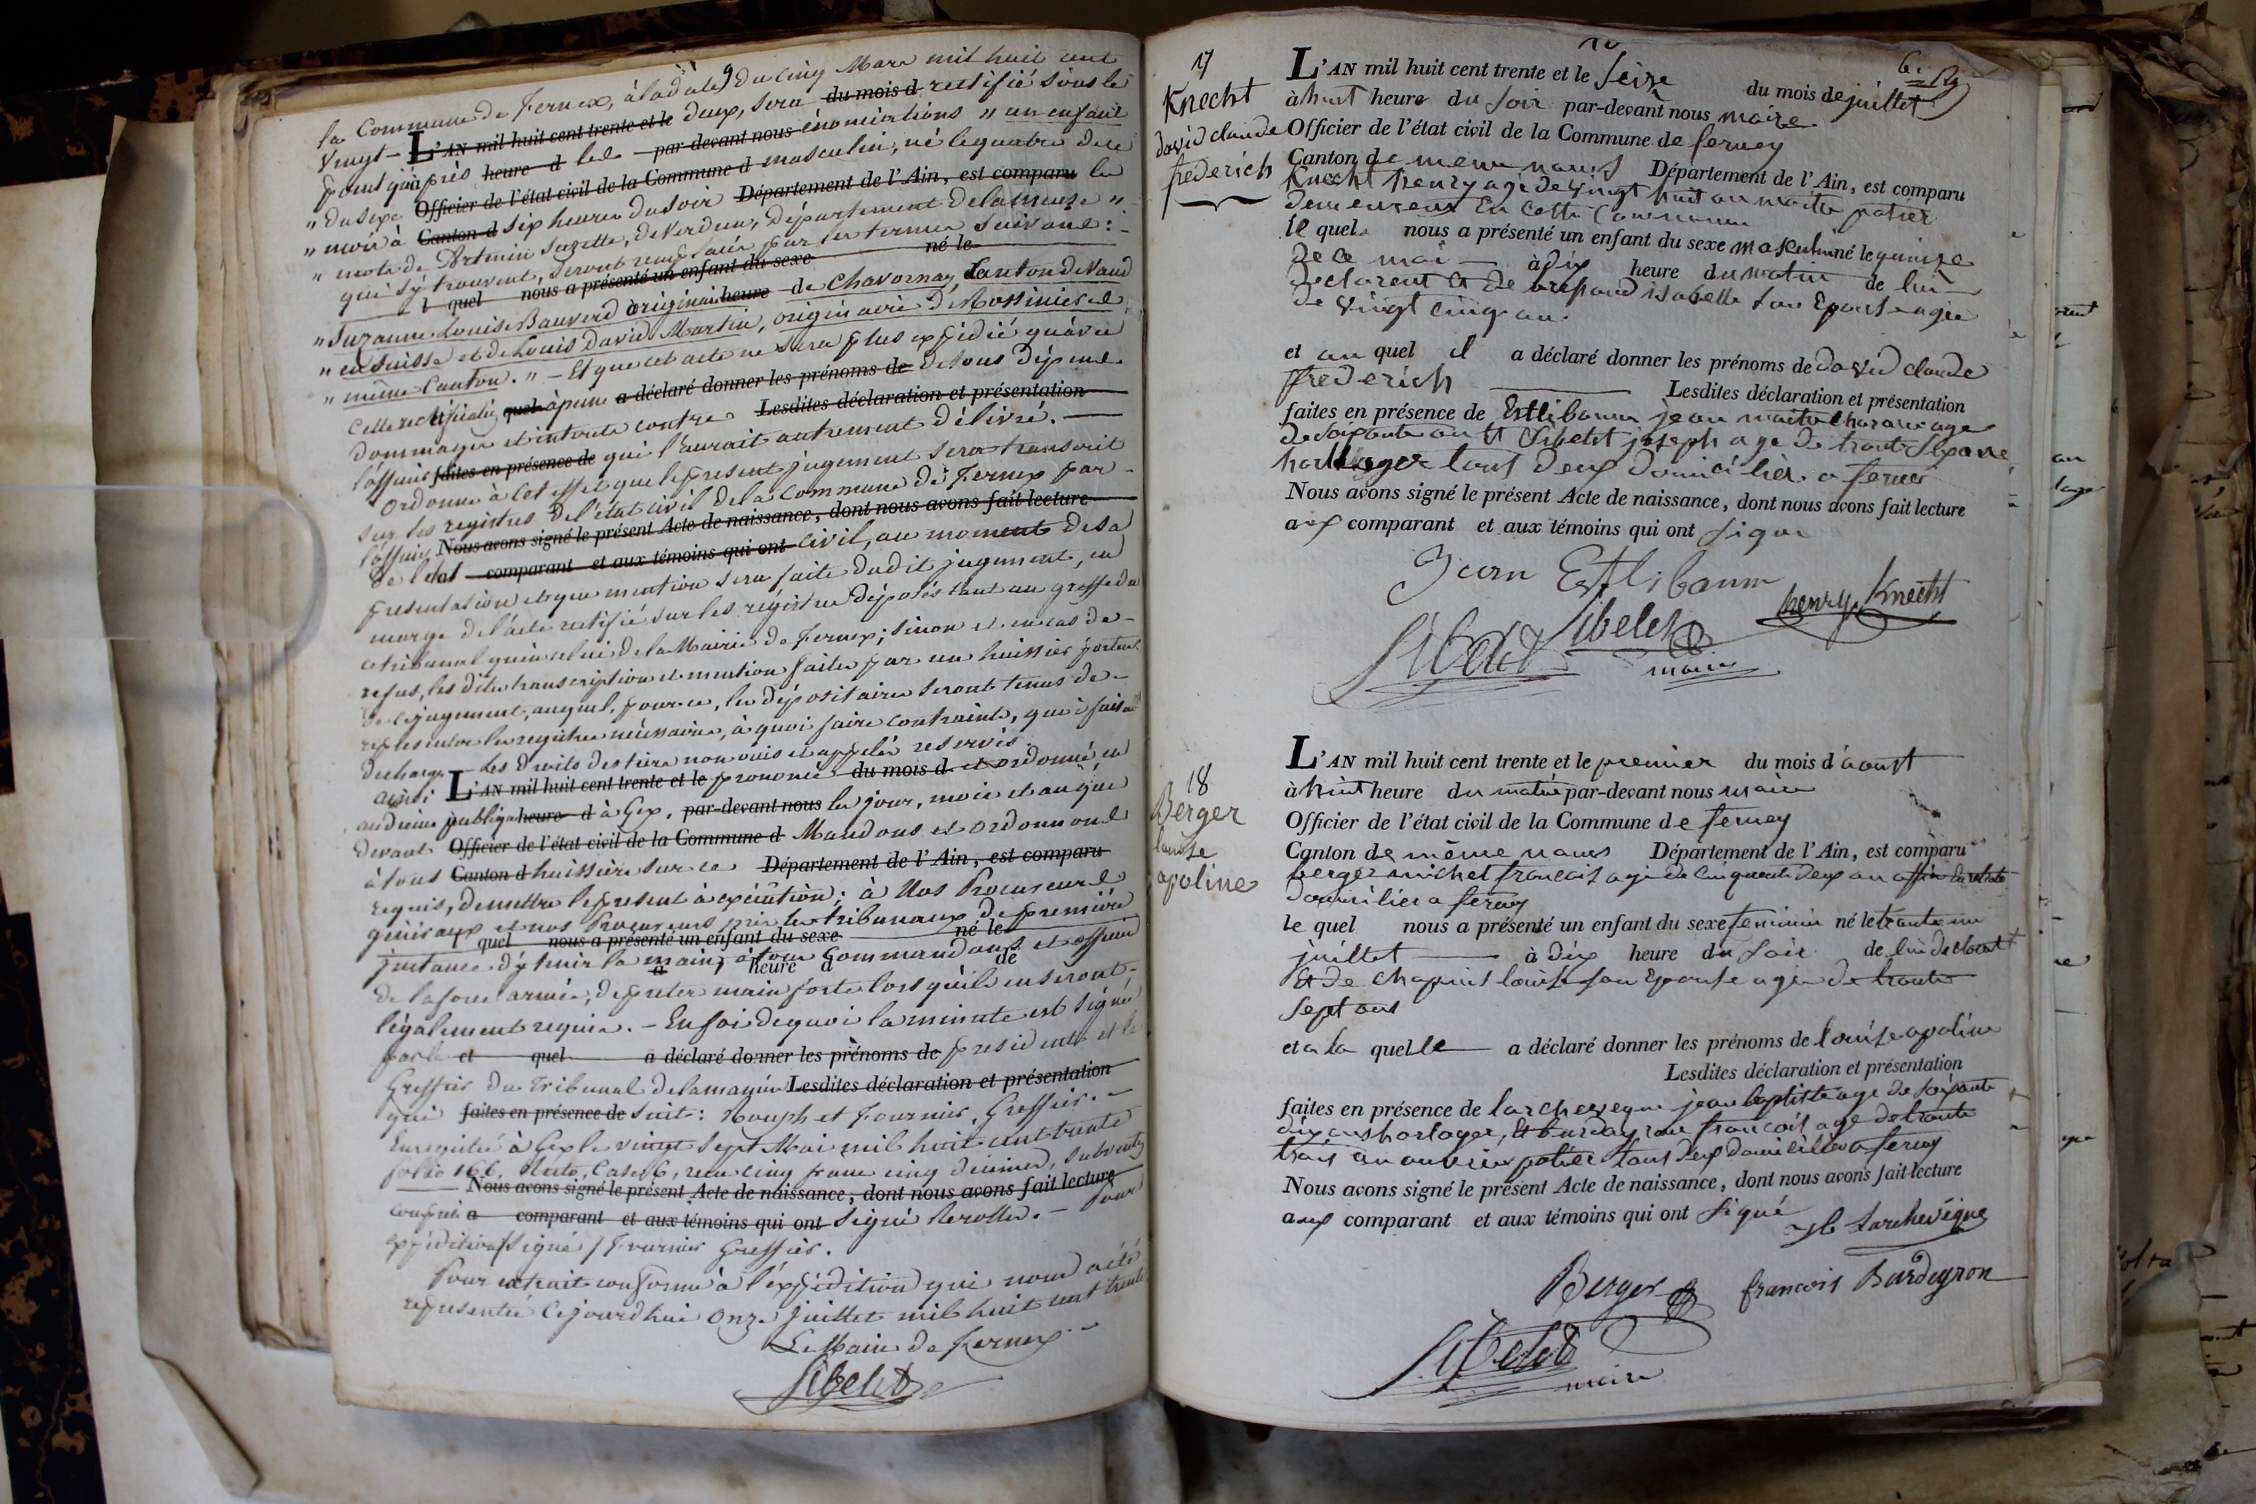 la Commune de Fernex, à la date du cinq Mars mil huit cent
vingt- L'AN mil huit cent trente et le deux, sera du mois d rectifié sous les
après heure d les par-devant nous énonciations " un enfant
" du sexe Officier de l'état civil de la Commune d masculin, né le quatre dudit
" mois à Canton d six heures du soir Département de l'Ain, est comparu les
" mots de Suzette, de Verdun, département de la meuse "
qui s'y trouvent, seront remplacés par les termes suivans :
l quel nous a présenté un enfant du sexe né le
" Suzanne Louise Bauverd originaire heure de Chavornay, Canton de Vaud
" en Suisse et de Louis David Martin, originaire de Rossinieres
" même Canton. " - Et que cet acte ne sera plus expédié qu'avec
cette rectification quel à peine a déclaré donner les prénoms de de tous dépens
dommages et intérêts contre Lesdites déclaration et présentation
l'officier faites en présence de qui l'aurait autrement délivré.
Ordonne à cet effet que le present jugement sera transcrit
sur les registres de l'état civil de la Commune de Fernex par
l'officier Nous avons signé le présent Acte de naissance, dont nous avons fait lecture
de l'état comparant et aux témoins qui ont civil, au moment de sa
presentation et que mention sera faite dudit jugement, en
marge de l'acte rectifié sur les registres déposés tant au greffe du
tribunal qu'en celui de la Mairie de Fernex; sinon et en cas de
refus, les dites transcription et mention faites par un huissier porteur
de ce jugement, auquel, pour ce, les dépositaires seront tenus de
représenter les registres nécessaires, à quoi faire contraints, quoi faisant
déchargés - Les droits des tiers non ouis et appelés reservés.
ainsi L'AN mil huit cent trente et le prononcé du mois d et ordonné, en
audience publique heure d à Gex, par-devant nous les jour, mois et an que
devant Officier de l'état civil de la Commune d Mandons et ordonnons
à tous Canton d huissiers sur ce Département de l'Ain, est comparu
requis, de mettre le present à exécution; à Nos Procureurs
généraux et nos Procureurs près les tribunaux de première
quel nous a présenté un enfant du sexe né le
instance d'y tenir la main, à tous Commandans et officiers
à heure d de
de la force armée, de prêter main forte lorsqu'ils en seront
légalement requis. - En foi de quoi la minute est signée
par le et quel a déclaré donner les prènoms de president et le
Greffier du Tribunal de la manière Lesdites déclaration et présentation
qui faites en présence de suit: Rouph et Fournier, Greffier. -
Enregistré à Gex le vingt sept Mai mil huit cent trente
folio 166, Recto, Case 6, reçu cinq francs cinq décimes, subvention
Nous avons signé le présent Acte de naissance, dont nous avons fait lecture
comprise a comparant et aux témoins qui ont signé Pour
expédition (signé) Fournier Greffier.
Pour extrait conforme à l'expédition qui nous a été
représentée ce jourd'hui onze Juillet mil huit cent trente
Le Maire de Fernex
Sibelet
17
Knecht
david claude
frederich
L'AN mil huit cent trente et le seize du mois de juillet
à huit heure du soir par-devant nous maire
Officier de l'état civil de la Commune de ferney
Canton de meme nom Département de l'Ain, est comparu
Knecht henry agé de vingt huit an maitre potier
demeurent en cette Commune
le quel nous a présenté un enfant du sexe maskulin né le quinze
de ce moi à dix heure du matin de lui
declarent et de isabelle son Epouse agée
de vingt cinq an.
et au quel il a déclaré donner les prénoms de david claude
frederich Lesdites déclaration et présentation
faites en présence de Estlibaum jean maitre age
de soixante an et Sibelet joseph age de trente
horlloger tous deux domiciliés a ferney
Nous avons signé le présent Acte de naissance, dont nous avons fait lecture
aux comparant et aux témoins qui ont signé
Jean Estlibaum
henry Knecht
Sibelet
Sibelet
maire
18
Berger
louise
apoline
L'AN mil huit cent trente et le premier du mois d'aoust
à huit heure du matin par-devant nous maire
Officier de l'état civil de la Commune de ferney
Canton de même nom Département de l'Ain, est comparu
berger michel francois agé de cinquante deux an
domicilier a ferney
le quel nous a présenté un enfant du sexe feminin né le trante un
juillet à dix heure du soir de lui declarent
Et de Chapuis louise son Epouse agée de trante
sept ans
et a la quelle a déclaré donner les prénoms de louise apoline
Lesdites déclaration et présentation
faites en présence de larcheveque jean baptiste age de soixante
dix ans horloger, et burdayron francois age de trante
trois an ouvrier potier tous deux domiciliés a ferney
Nous avons signé le présent Acte de naissance, dont nous avons fait lecture
aux comparant et aux témoins qui ont signé
Jb Larchevêque
Berger francois Burdeyron
Sibelet
maire